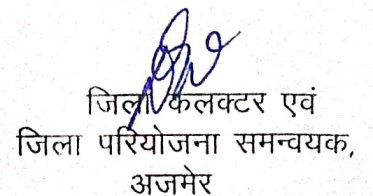 जिला कलक्टर एवं
जिला परियोजना समन्वयक,
अजमेर